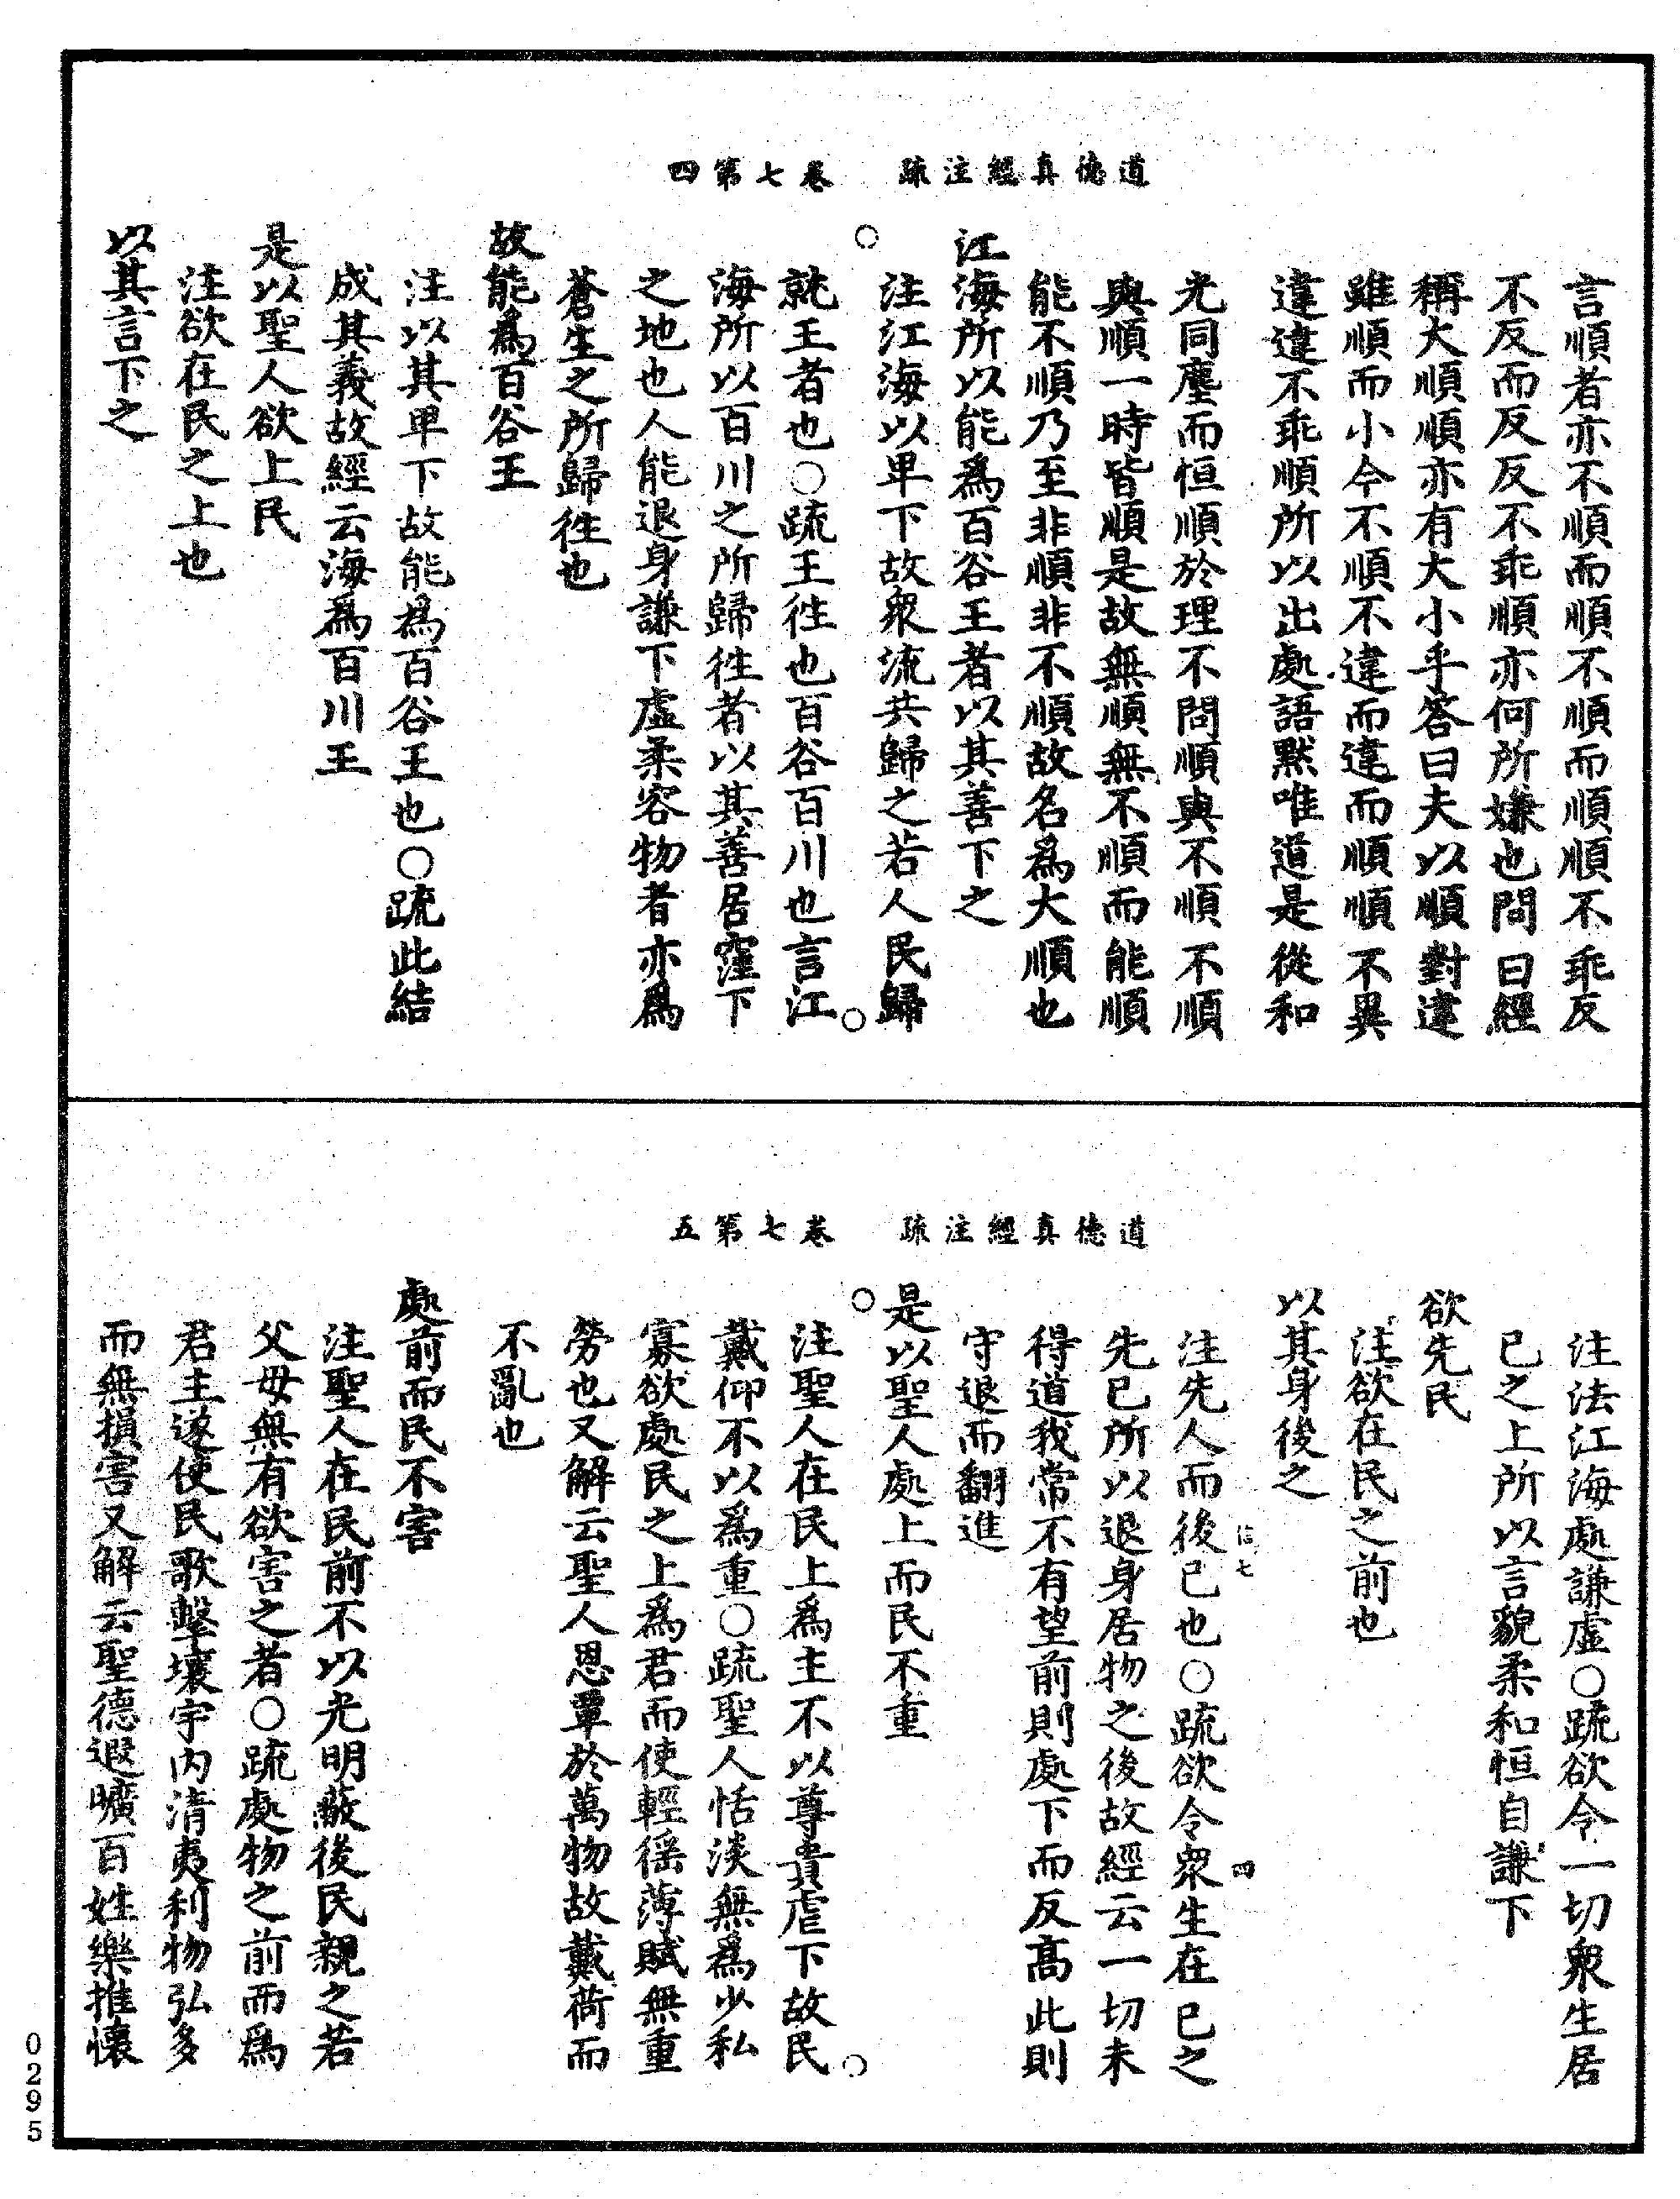 道德真經注疏　卷七第四
言順者亦不順而順不順而順順不乖反
不反而反反不乖順亦何所嫌也問曰經
稱大順順亦有大小乎答曰夫以順對違
雖順而小今不順不違而違而順順不異
違違不乖順所以出處語默唯道是從和
光同塵而恒順於理不問順與不順不順
與順一時皆順是故無順無不順而能順
能不順乃至非順非不順故名爲大順也
江海所以能爲百谷王者以其善下之
注江海以卑下故衆流共歸之若人民歸
就王者也○疏王徃也百谷百川也言江
海所以百川之所歸徃者以其善居窪下
之地也人能退身謙下虛柔容物者亦爲
蒼生之所歸徃也
故能爲百谷王
注以其卑下故能爲百谷王也○疏此結
成其義故經云海爲百川王
是以聖人欲上民
注欲在民之上也
以其言下之
道德真經注疏　卷七第五
注法江海處謙虛○疏欲令一切衆生居
已之上所以言貌柔和恒自謙下
欲先民
注欲在民之前也
以其身後之
信七　四
注先人而後已也○疏欲令衆生在已之
先已所以退身居物之後故經云一切未
得道我常不有望前則處下而反高此則
守退而翻進
是以聖人處上而民不重
注聖人在民上爲主不以尊貴虐下故民
戴仰不以爲重○疏聖人恬淡無爲少私
寡欲處民之上爲君而使輕徭薄賦無重
勞也又解云聖人恩覃於萬物故戴荷而
不亂也
處前而民不害
注聖人在民前不以光明蔽後民親之若
父母無有欲害之者○疏處物之前而爲
君主遂使民歌擊壤宇內清夷利物弘多
而無損害又解云聖德遐曠百姓樂推懷
0295